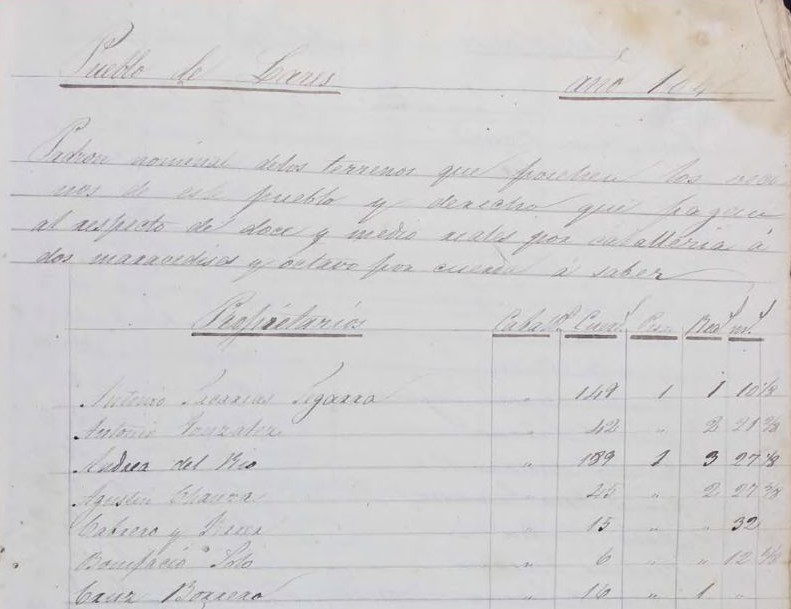 Pueblo de Lares año 184
Padron nominal delos terrenos que poseben los veci
nos de este pueblo y derecho que pagan
al respecto de doce y medio reales por caballeria á
dos maravedises y octavo por cuerda á saber
Propietarios Caball.s Cuer.s Pes. Rea.s m.s
Antonio Zacarias Segarra " 149 1 1 10 1/8
Antonio Gonzalez " 42 " 2 21
Andrea del Rio " 189 1 3 27
Agustin " " 2 27
Cabrero y " 15 " " 32
Bonifacio Soto " 6 " " 12
Cruz Borrero " 16 " 1 "